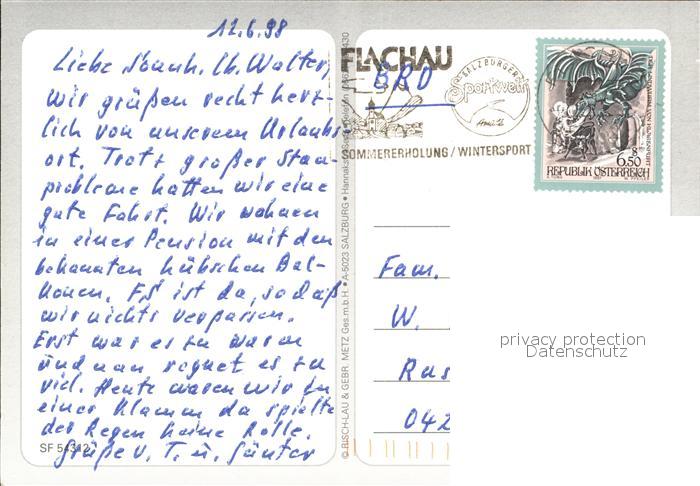 12.6.98
Liebe Hannh. lb. Walter,
wir grüßen recht herz-
lich von unserem Urlaubs-
ort. Trotz großer Stau-
probleme hatten wir eine
gute Fahrt. Wir wohnen
in einer Pension mit den
bekannten hübschen Bal-
konen. FS ist da, so daß
wir nichts verpassen.
Erst war es zu warm
und nun regnet es zu
viel. Heute waren wir in
einer Klamm da spielte
der Regen keine Rolle.
Grüße v. T. u. Günter
SF 54312
© RISCH-LAU & GEBR. METZ Ges.m.b.H. • A-5023 SALZBURG •
FLACHAU
BRD
SALZBURGER
Sportwelt
SOMMERERHOLUNG / WINTERSPORT
8
6.50
REPUBLIK ÖSTERREICH
Fam.
W.
Ras
042
privacy protection
Datenschutz